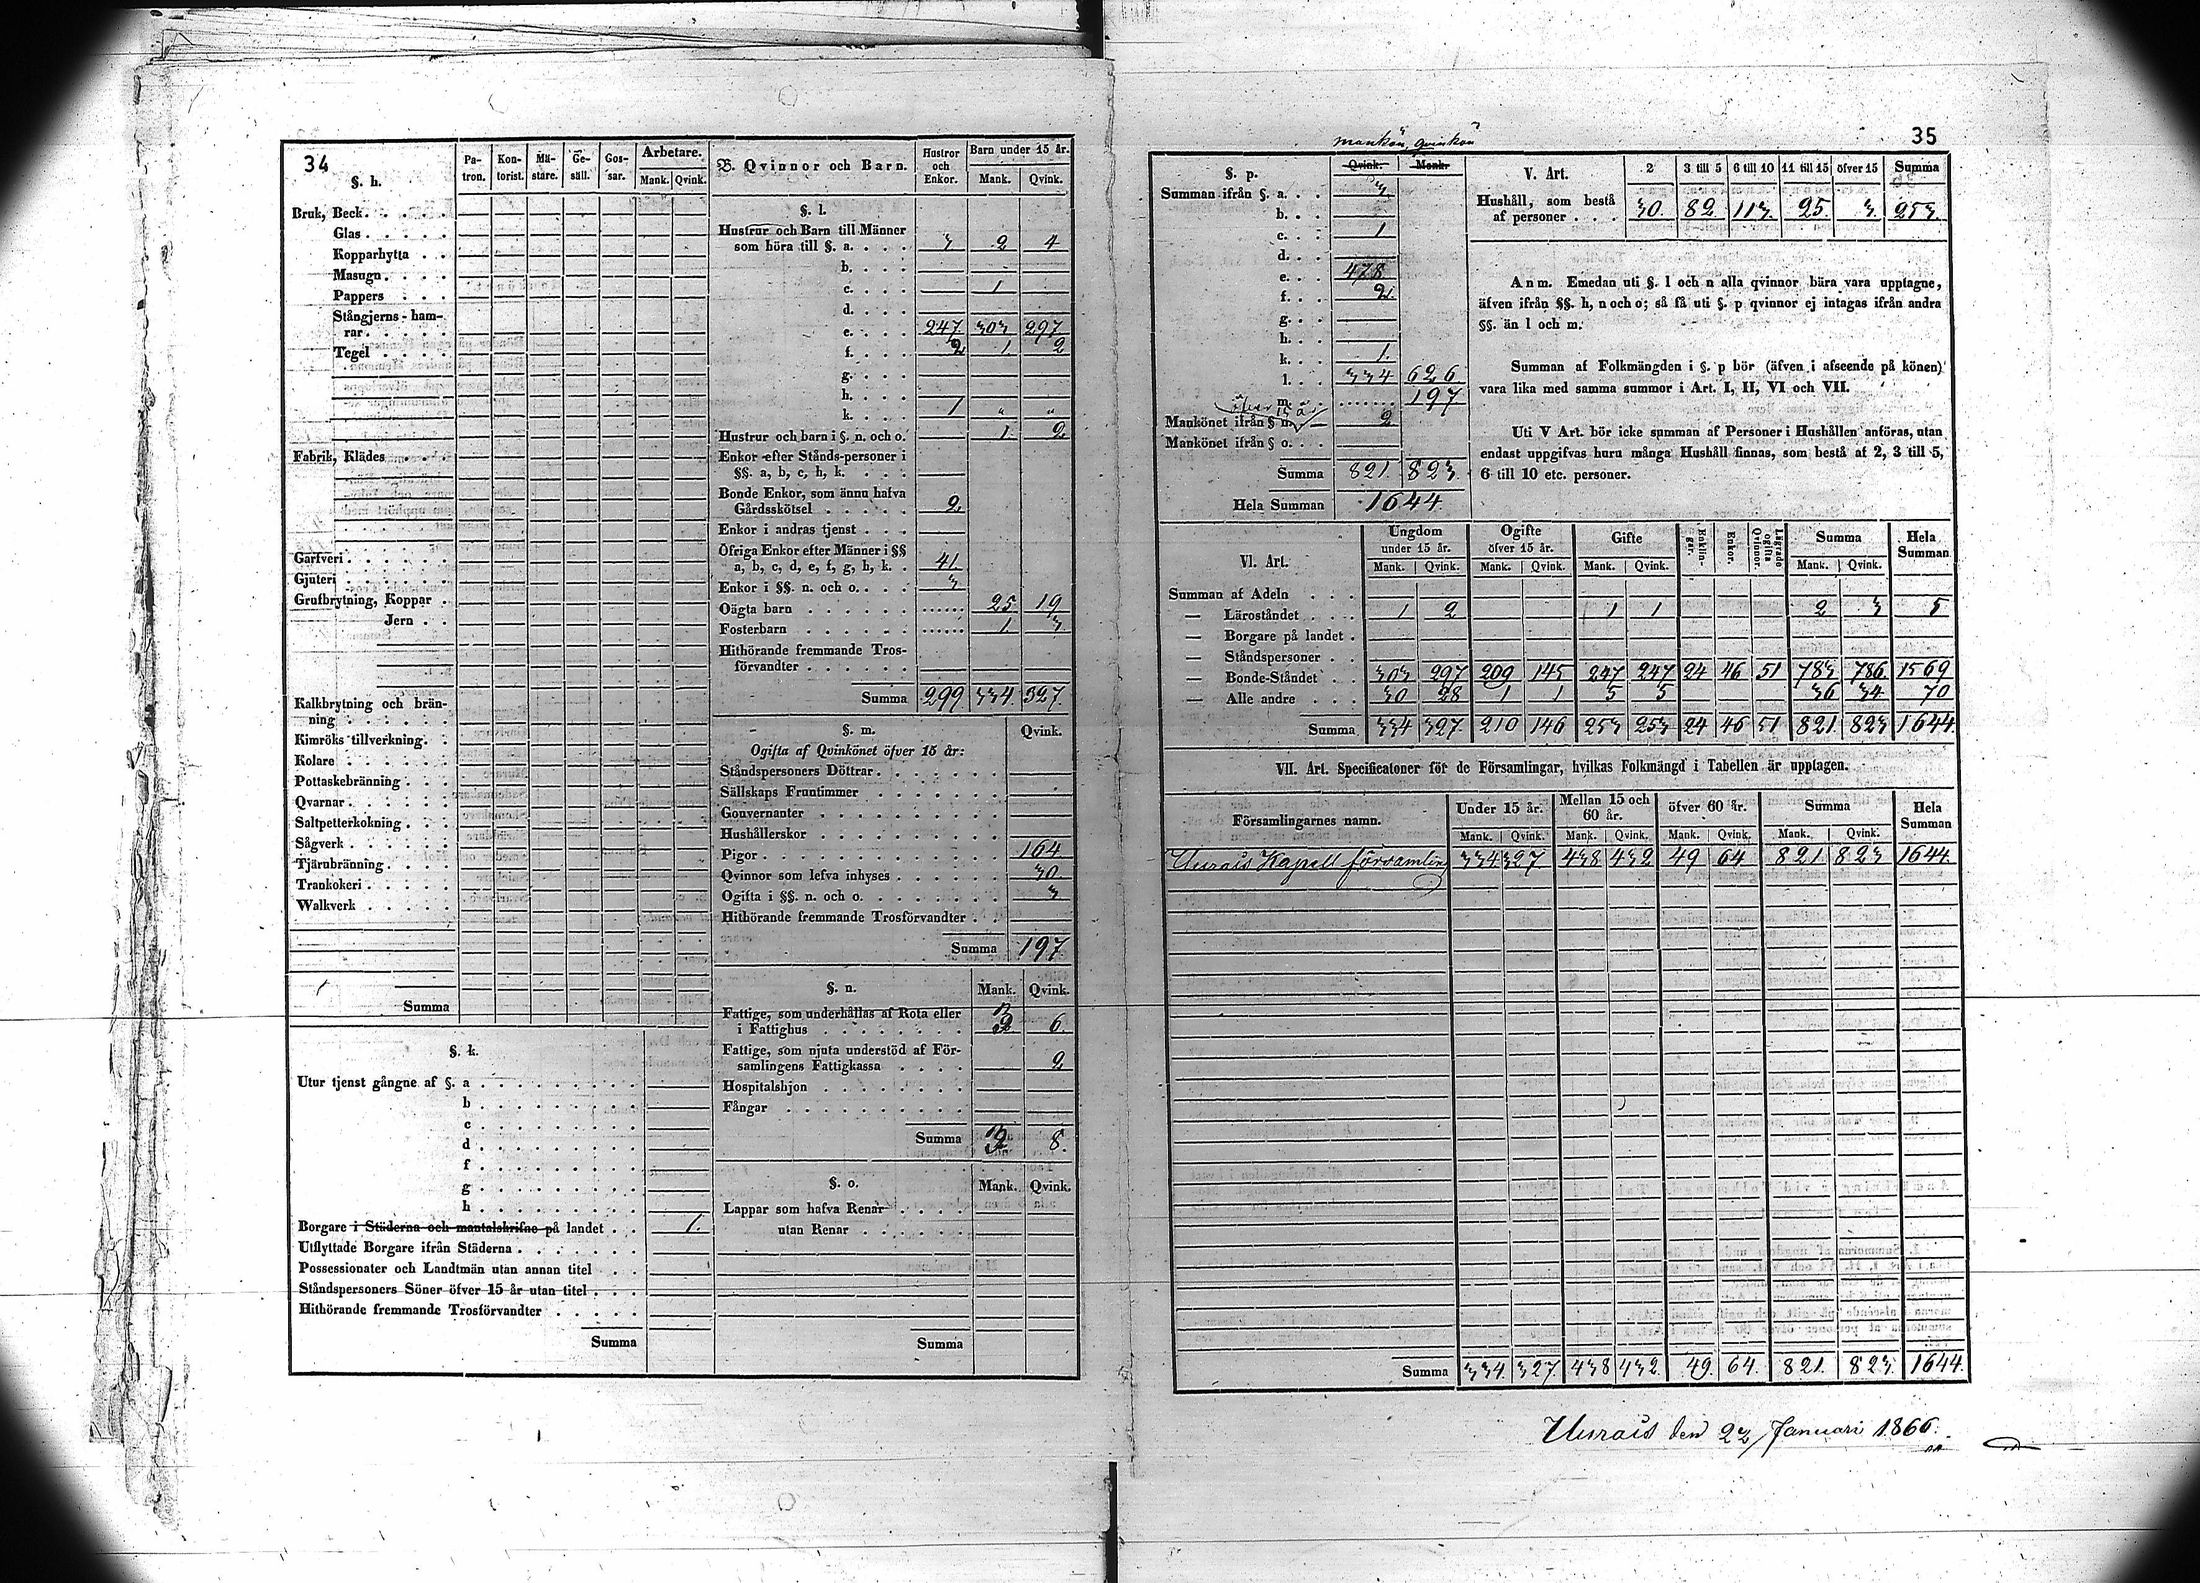 34
§. h.
Pa-tron. Kon-torist. Mä-stare. Ge-säll. Gos-sar. Arbetare. Mank. Qvink.
Bruk, Beck
Glas
Kopparhytta
Masugn
Pappers
Stångjerns-ham-
rar
Tegel
Fabrik, Klädes
Garfveri
Gjuteri
Grufbrytning, Koppar
Jern
Kalkbrytning och brän-
ning
Kimröks tillverkning
Kolare
Pottaskebränning
Qvarnar
Saltpetterkokning
Sågverk
Tjärubränning
Trankokeri
Walkverk
Summa
§. k.
Utur tjenst gångne af §. a
b
c
d
f
g
h
Borgare i Städerna och mantalskrifne på landet 1.
Utflyttade Borgare ifrån Städerna
Possessionater och Landtmän utan annan titel
Ståndspersoners Söner öfver 15 år utan titel
Hithörande fremmande Trosförvandter
Summa
B. Qvinnor och Barn. Hustror och Enkor. Barn under 15 år. Mank. Qvink.
§. l.
Hustrur och Barn till Männer
som höra till §. a. 3 2 4
b.
c. 1
d.
e. 247 303 297
f. 2 1. 2
g.
h.
k. 1 " "
Hustrur och barn i §. n. och o. 1. 2
Enkor efter Stånds-personer i
§§. a, b, c, h, k.
Bonde Enkor, som ännu hafva
Gårdsskötsel 2.
Enkor i andras tjenst
Öfriga Enkor efter Männer i §§
a, b, c, d, e, f, g, h, k. 41.
Enkor i §§. n. och o. 3
Oägta barn 25 19
Fosterbarn 1. 3
Hithörande fremmande Tros-
förvandter
Summa 299 334. 327.
§. m. Qvink.
Ogifta af Qvinkönet öfver 15 år:
Ståndspersoners Döttrar
Sällskaps Fruntimmer
Gouvernanter
Hushållerskor
Pigor 164
Qvinnor som lefva inhyses 30.
Ogifta i §§. n. och o. 3
Hithörande fremmande Trosförvandter
Summa 197.
§. n. Mank. Qvink.
Fattige, som underhållas af Rota eller
i Fattighus 6.
Fattige, som njuta understöd af För-
samlingens Fattigkassa 2
Hospitalshjon
Fångar
Summa 8.
§. o. Mank. Qvink.
Lappar som hafva Renar
utan Renar
Summa
35
mankön qvinkön
§. p. Qvink. Mank.
Summan ifrån §. a. 3
b.
c. 1
d.
e. 478
f. 2.
g.
h.
k. 1.
l. 334 626
m. 197
öfver 15 år
Mankönet ifrån § n. 2
Mankönet ifrån § o.
Summa 821. 823.
Hela Summan 1644.
V. Art. 2 3 till 5 6 till 10 11 till 15 öfver 15 Summa
Hushåll, som bestå
af personer 30. 82 113. 25 3. 253.
Anm. Emedan uti §. l och n alla qvinnor bära vara upptagne,
äfven ifrån §§. h, n och o; så få uti §. p qvinnor ej intagas ifrån andra
§§. än l och m.
Summan af Folkmängden i §. p bör (äfven i afseende på könen)
vara lika med samma summor i Art. I, II, VI och VII.
Uti V Art. bör icke summan af Personer i Hushållen anföras, utan
endast uppgifvas huru många Hushåll finnas, som bestå af 2, 3 till 5,
6 till 10 etc. personer.
VI. Art. Ungdom under 15 år. Ogifte öfver 15 år. Gifte Enklin-gar. Enkor. Lägrade ogifta Qvinnor. Summa Hela Summan
Mank. Qvink. Mank. Qvink. Mank. Qvink. Mank. Qvink.
Summan af Adeln
— Läroståndet 1 2 1 1 2 3 5
— Borgare på landet
— Ståndspersoner
— Bonde-Ståndet 303 297 209 145 247 247 24 46 51 783 786 1569
— Alle andre 30 28 1 1 5 5 36 34 70
Summa 334 327. 210 146 253 253 24 46 51 821. 823 1644.
VII. Art. Specificatoner för de Församlingar, hvilkas Folkmängd i Tabellen är upptagen.
Församlingarnes namn. Under 15 år. Mellan 15 och 60 år. öfver 60 år. Summa Hela Summan
Mank. Qvink. Mank. Qvink. Mank. Qvink. Mank. Qvink.
Uurais Kapell församling 334 327 438 432 49 64 821 823 1644.
Summa 334. 327. 438 432. 49. 64. 821. 823. 1644.
Uurais den 23 Januari 1866.